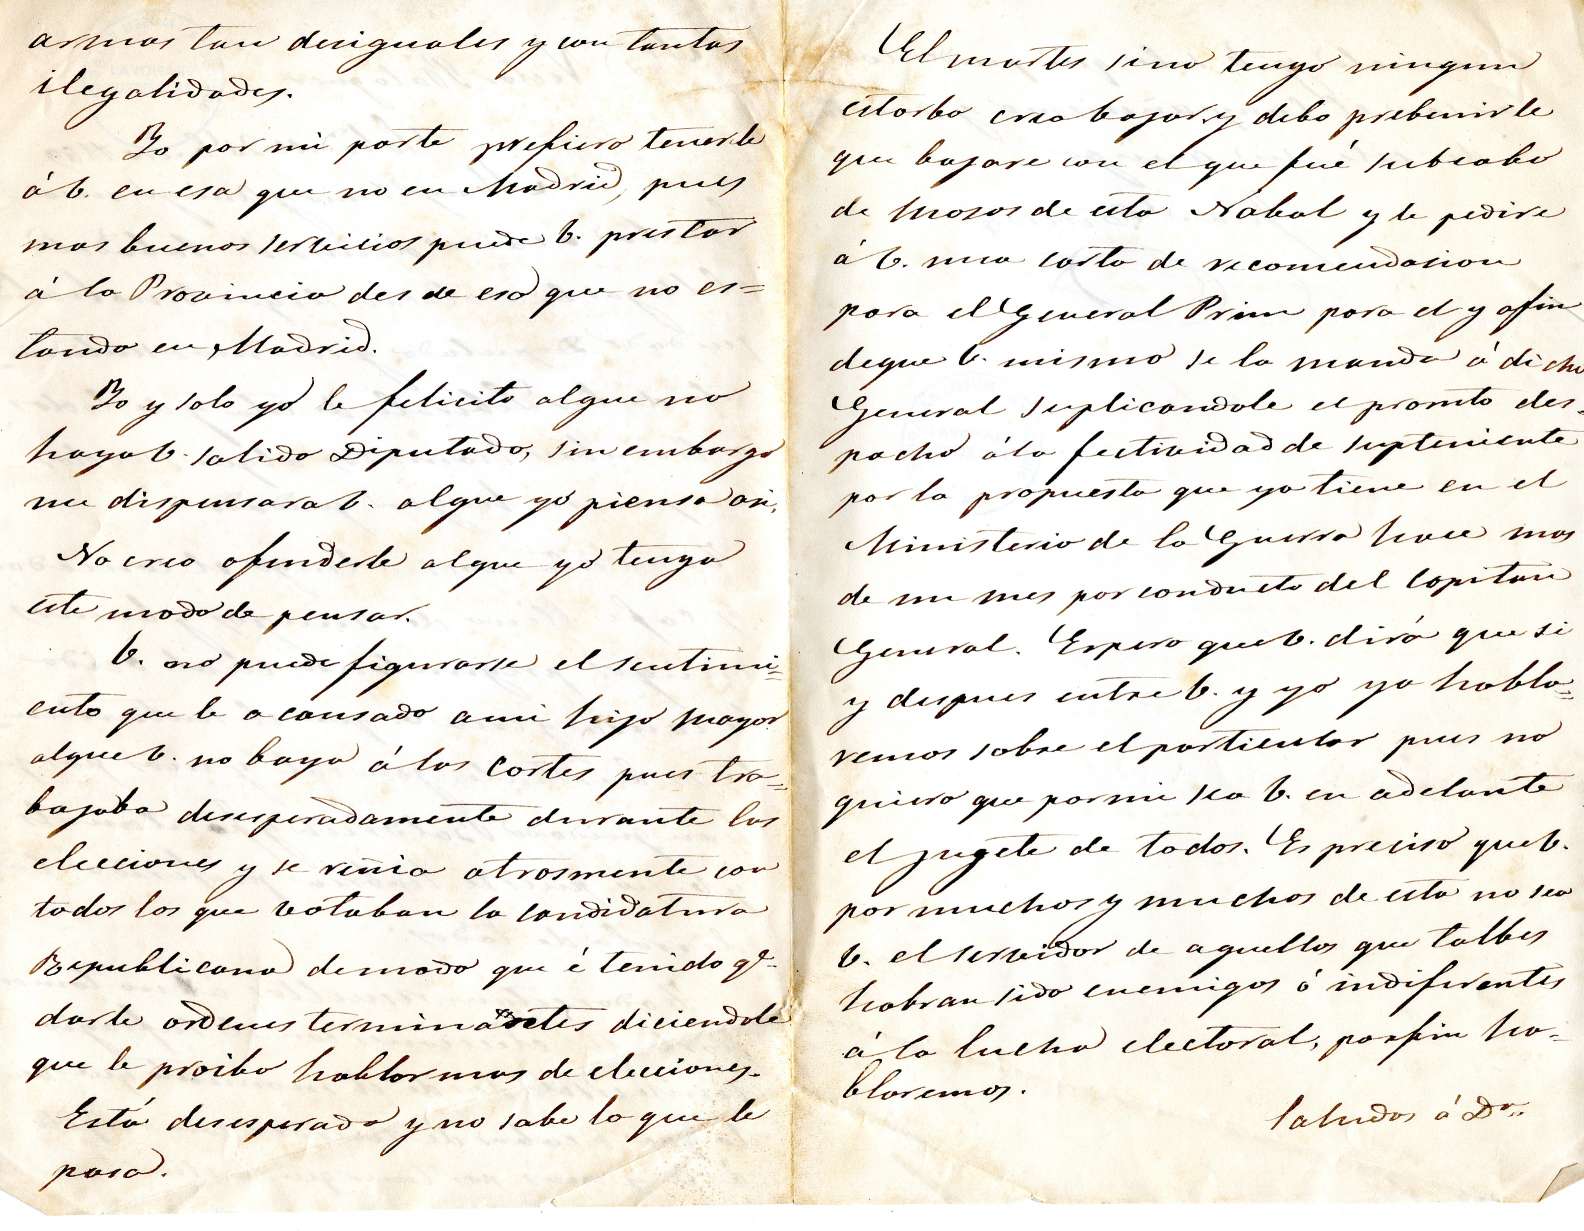 armas tan desiguales y con tantas
ilegalidades.
Yo por mi parte prefiero tenerle
á V. en esa que no en Madrid, pues
mas buenos serbicios puede V. prestar
á la Provincia desde esa que no es=
tando en Madrid.
Yo y solo yo le felicito alque no
haya V. salido Diputado, sin embargo
me dispensara V. alque yo piense asi.
No creo ofenderle alque yo tenga
este modo de pensar.
V. no puede figurarse el sentimi=
ento que le a causado a mi hijo mayor
alque V. no baya á las Cortes pues tra=
bajaba desesperadamente durante las
elecciones y se reñia atrosmente con
todos los que botaban la candidatura
Republicana demodo que é tenido qe.
darle ordenes terminantes diciendole
que le proibo hablar mas de elecciones.
Está desesperado y no sabe lo que le
pasa.
El martes sino tengo ningun
estorbo creo bajar, y debo prebenirle
que bajare con el que fué subcabo
de Mosos de esta Nabal y le pedire
á V. una carta de recomendasion
para el General Prim para el y afin
deque V. mismo se la mande á dicho
General suplicandole el pronto des=
pacho á la fectividad de supteniente
por la propuesta que ya tiene en el
Ministerio de la Guerra hace mas
de un mes por conducto del Capitan
General. Espero que V. dirá que si
y despues entre V. y yo ya habla=
remos sobre el particular pues no
quiero que por mi sea V. en adelante
el jugete de todos. Es preciso que V.
por muchos y muchos de esta no sea
V. el serbidor de aquellos que talbes
habran sido enemigos ó indiferentes
á la lucha electoral, porfin ha=
blaremos.
Saludos á Da.